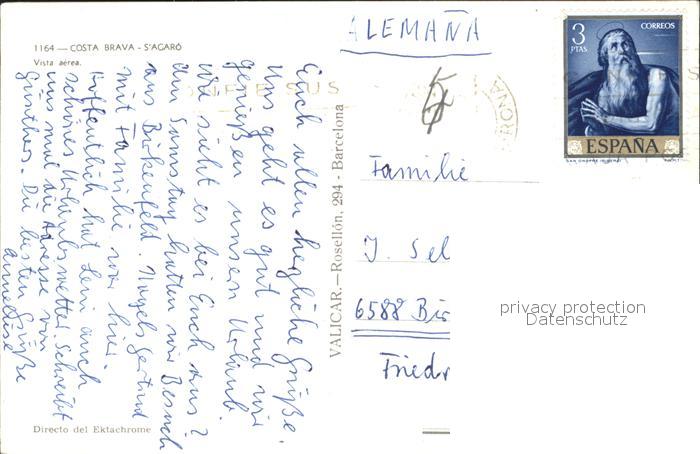 1164 — COSTA BRAVA - S'AGARÓ
Vista aérea.
Euch allen herzliche Grüße.
Uns geht es gut und wir
genießen unsern Urlaub.
Wie sieht es bei Euch aus?
Am Samstag hatten wir Besuch
aus Birkenfeld. Nagels Gertrud
mit Familie war hier.
Hoffentlich hat Levi auch
schönes Urlaubswetter. Schreibt
uns mal die Adresse von
Günther. Die besten Grüße
Anneliese
Directo del Ektachrome
VALICAR.—Rosellón, 294 - Barcelona
ALEMAÑA
Familie
J. Sel
6588 Bir
Friedr
3
PTAS
CORREOS
ESPAÑA
privacy protection
Datenschutz